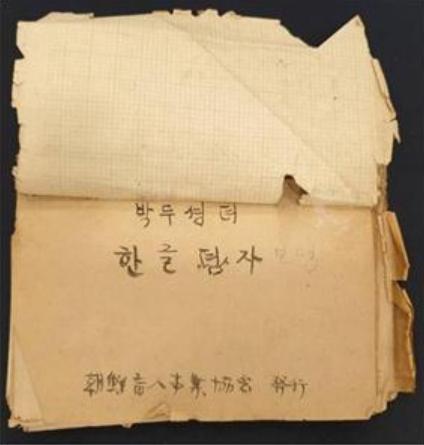 박두성 뎌
한글 뎜자
朝鮮盲人事業協会 発行